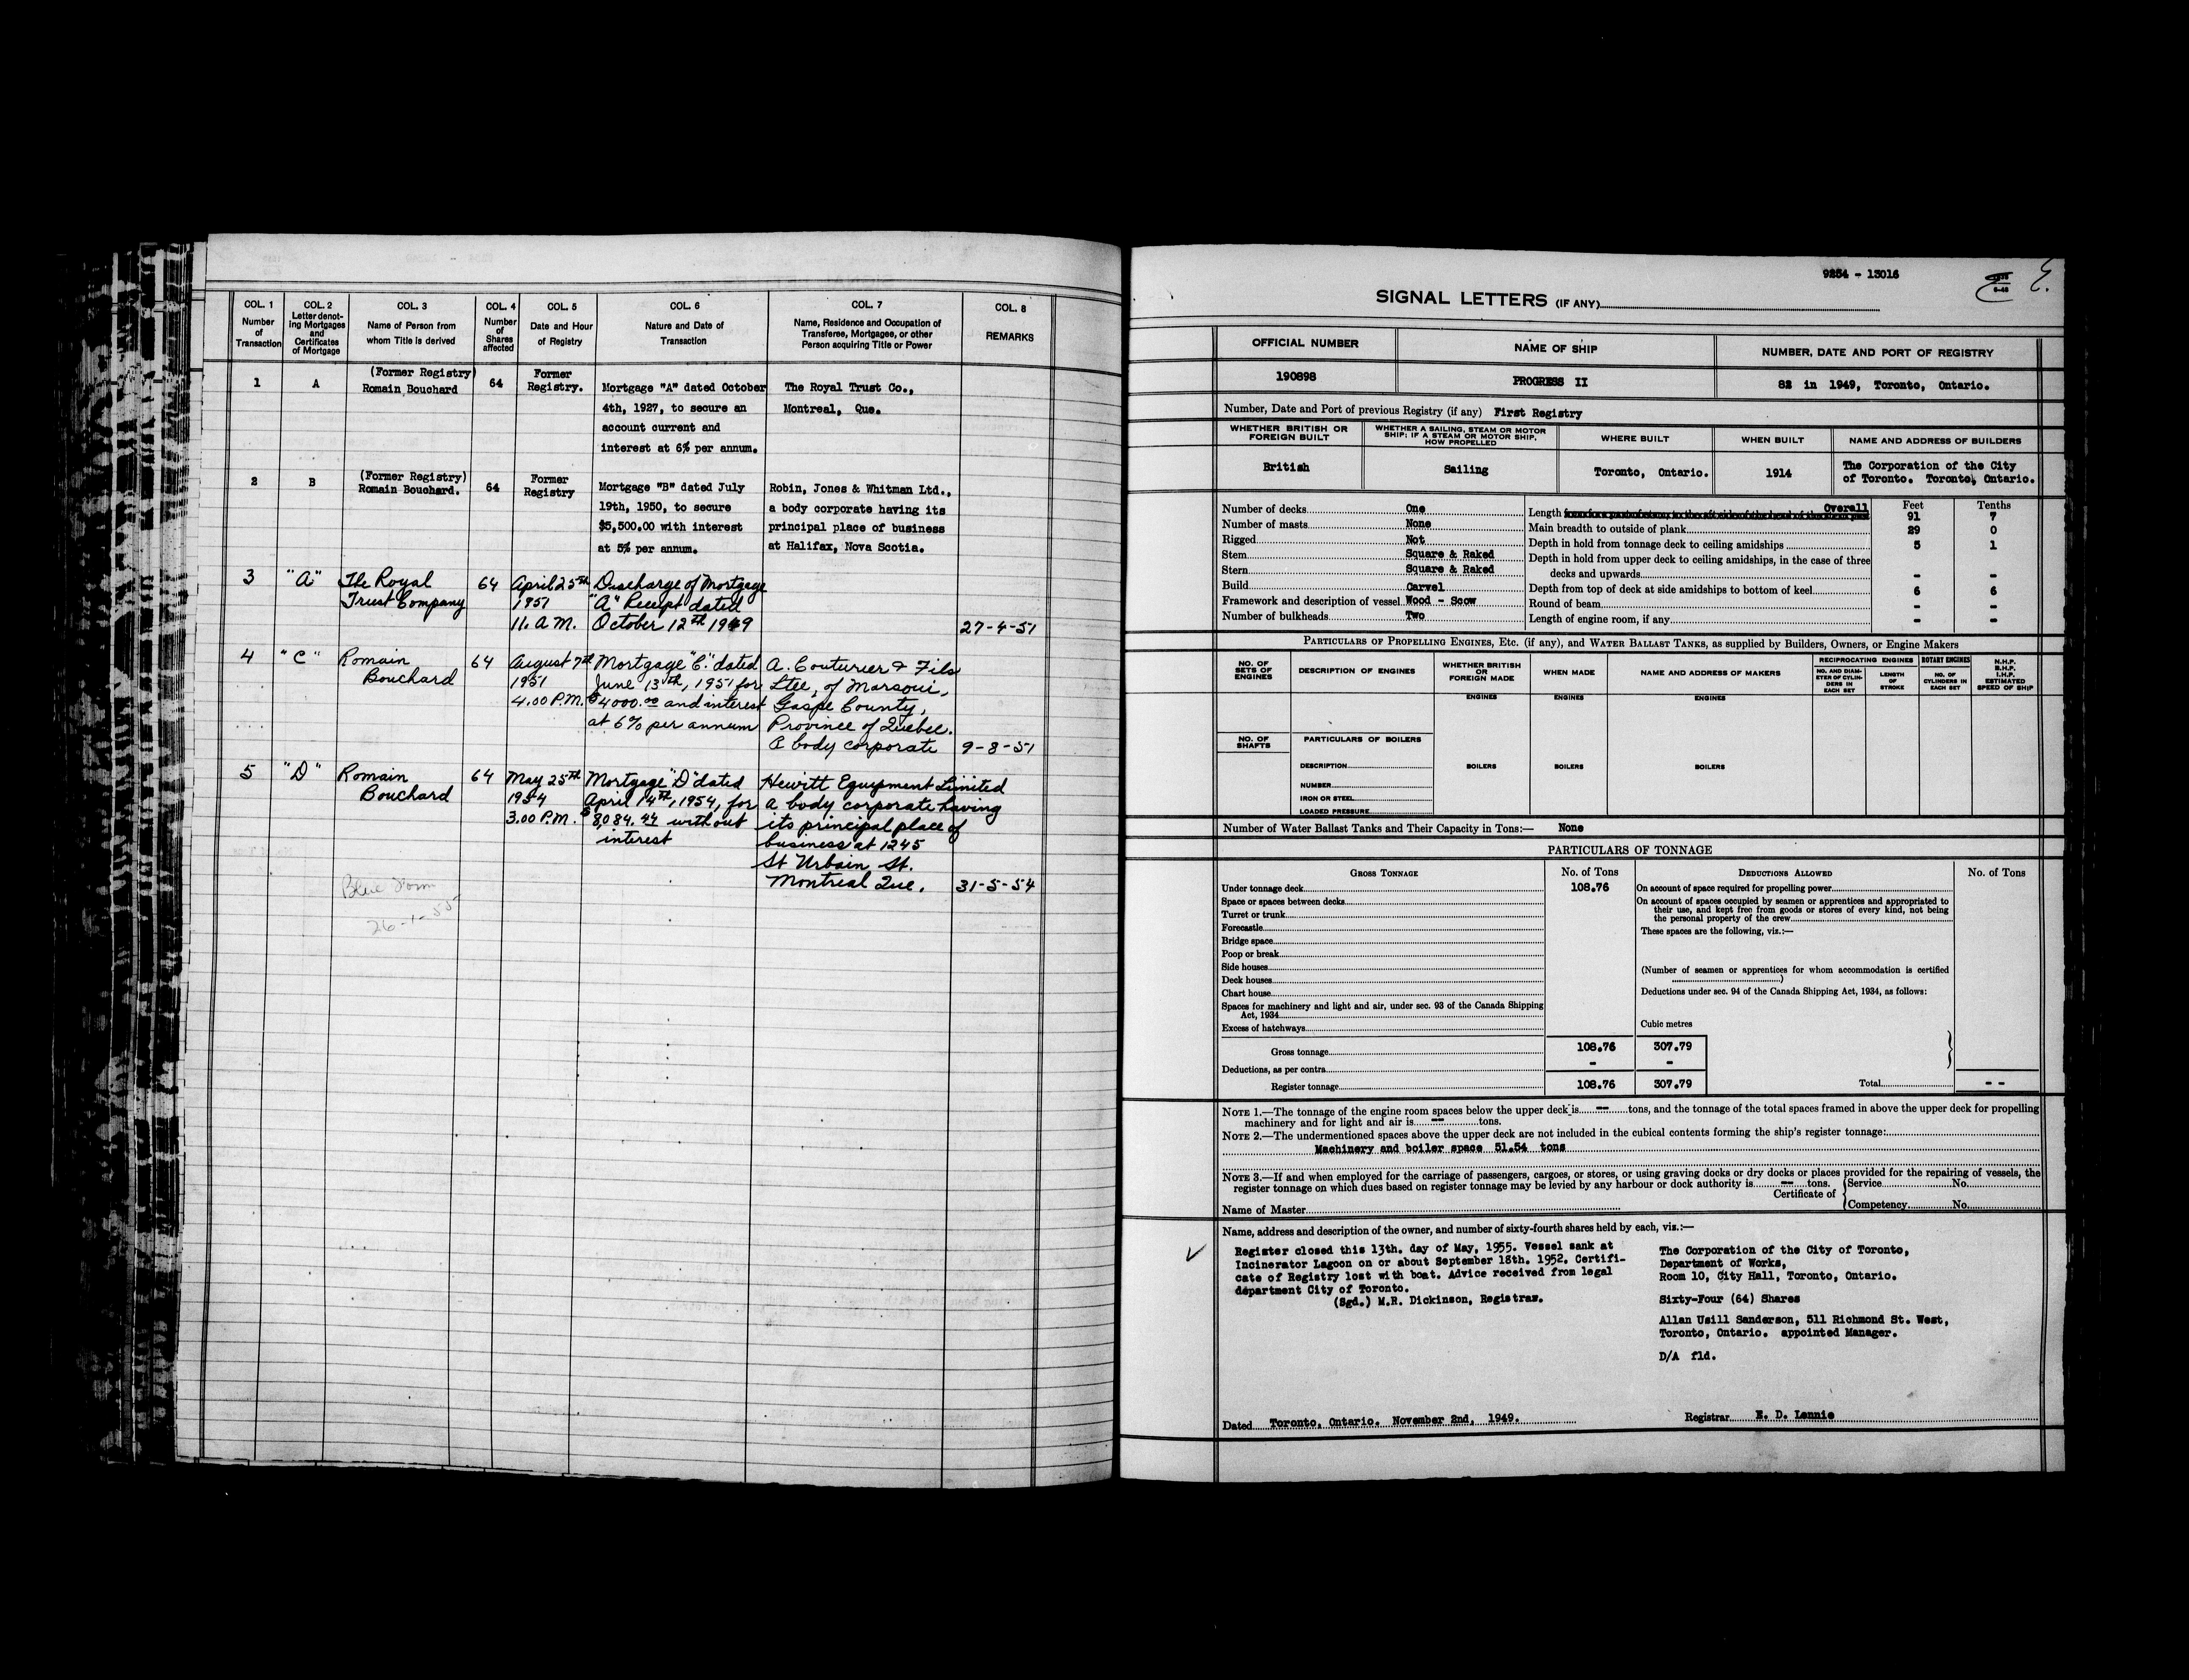 COL. 1 COL. 2 COL. 3 COL. 4 COL. 5 COL. 6 COL. 7 COL. 8
Number of Transaction
Letter denoting Mortgages and Certificates of Mortgage
Name of Person from whom Title is derived
Number of Shares affected
Date and Hour of Registry
Nature and Date of Transaction
Name, Residence and Occupation of Transferee, Mortgagee, or other Person acquiring Title or Power
REMARKS
1 A (Former Registry) Romain Bouchard 64 Former Registry.
Mortgage "A" dated October
4th, 1927, to secure an
account current and
interest at 6% per annum.
The Royal Trust Co.,
Montreal, Que.
2 B (Former Registry) Romain Bouchard. 64 Former Registry
Mortgage "B" dated July
19th, 1950, to secure
$5,500.00 with interest
at 5% per annum.
Robin, Jones & Whitman Ltd.,
a body corporate having its
principal place of business
at Halifax, Nova Scotia.
3 "A" The Royal Trust Company 64 April 25th 1951 11. A.M.
Discharge of Mortgage
"A" Receipt dated
October 12th 1949
27-4-51
4 "C" Romain Bouchard 64 August 7th 1951 4.00 P.M.
Mortgage "C" dated
June 13th, 1951 for
$4000.00 and interest
at 6% per annum
A. Couturier & Fils
Ltee, of Marsoui,
Gaspe County,
Province of Quebec.
A body corporate
9-8-51
5 "D" Romain Bouchard 64 May 25th 1954 3.00 P.M.
Mortgage "D" dated
April 14th, 1954, for
$8,084.44 without
interest
Hewitt Equipment Limited
a body corporate having
its principal place of
business at 1245
St Urbain St.
Montreal Que.
31-5-54
Blue Form
26-1-55
9254 - 13016
SIGNAL LETTERS (IF ANY)
OFFICIAL NUMBER NAME OF SHIP NUMBER, DATE AND PORT OF REGISTRY
190898 PROGRESS II 82 in 1949, Toronto, Ontario.
Number, Date and Port of previous Registry (if any) First Registry
WHETHER BRITISH OR FOREIGN BUILT
WHETHER A SAILING, STEAM OR MOTOR SHIP; IF A STEAM OR MOTOR SHIP, HOW PROPELLED
WHERE BUILT
WHEN BUILT
NAME AND ADDRESS OF BUILDERS
British Sailing Toronto, Ontario. 1914
The Corporation of the City
of Toronto. Toronto, Ontario.
Number of decks One
Number of masts None
Rigged Not
Stem Square & Raked
Stern Square & Raked
Build Carvel
Framework and description of vessel Wood - Scow
Number of bulkheads Two
Feet Tenths
Length Overall 91 7
Main breadth to outside of plank 29 0
Depth in hold from tonnage deck to ceiling amidships 5 1
Depth in hold from upper deck to ceiling amidships, in the case of three
decks and upwards - -
Depth from top of deck at side amidships to bottom of keel 6 6
Round of beam - -
Length of engine room, if any - -
PARTICULARS OF PROPELLING ENGINES, ETC. (if any), and WATER BALLAST TANKS, as supplied by Builders, Owners, or Engine Makers
NO. OF SETS OF ENGINES
DESCRIPTION OF ENGINES
WHETHER BRITISH OR FOREIGN MADE
WHEN MADE
NAME AND ADDRESS OF MAKERS
RECIPROCATING ENGINES
ROTARY ENGINES
NO. AND DIAMETER OF CYLINDERS IN EACH SET
LENGTH OF STROKE
NO. OF CYLINDERS IN EACH SET
N.H.P.
B.H.P.
I.H.P.
ESTIMATED SPEED OF SHIP
ENGINES ENGINES ENGINES
NO. OF SHAFTS
PARTICULARS OF BOILERS
DESCRIPTION
BOILERS BOILERS BOILERS
NUMBER
IRON OR STEEL
LOADED PRESSURE
Number of Water Ballast Tanks and Their Capacity in Tons:— None
PARTICULARS OF TONNAGE
GROSS TONNAGE No. of Tons DEDUCTIONS ALLOWED No. of Tons
Under tonnage deck 108.76
Space or spaces between decks
Turret or trunk
Forecastle
Bridge space
Poop or break
Side houses
Deck houses
Chart house
Spaces for machinery and light and air, under sec. 93 of the Canada Shipping
Act, 1934
Excess of hatchways
Gross tonnage 108.76 307.79
Deductions, as per contra - -
Register tonnage 108.76 307.79
On account of space required for propelling power
On account of spaces occupied by seamen or apprentices and appropriated to
their use, and kept free from goods or stores of every kind, not being
the personal property of the crew
These spaces are the following, viz.:—
(Number of seamen or apprentices for whom accommodation is certified
)
Deductions under sec. 94 of the Canada Shipping Act, 1934, as follows:
Cubic metres
Total - -
NOTE 1.—The tonnage of the engine room spaces below the upper deck is — tons, and the tonnage of the total spaces framed in above the upper deck for propelling
machinery and for light and air is — tons.
NOTE 2.—The undermentioned spaces above the upper deck are not included in the cubical contents forming the ship's register tonnage:
Machinery and boiler space 51.54 tons
NOTE 3.—If and when employed for the carriage of passengers, cargoes, or stores, or using graving docks or dry docks or places provided for the repairing of vessels, the
register tonnage on which dues based on register tonnage may be levied by any harbour or dock authority is — tons.
Certificate of Service No.
Competency No.
Name of Master
Name, address and description of the owner, and number of sixty-fourth shares held by each, viz.:—
Register closed this 13th. day of May, 1955. Vessel sank at
Incinerator Lagoon on or about September 18th. 1952. Certifi-
cate of Registry lost with boat. Advice received from legal
department City of Toronto.
(Sgd.) M.R. Dickinson, Registrar.
The Corporation of the City of Toronto,
Department of Works,
Room 10, City Hall, Toronto, Ontario.
Sixty-Four (64) Shares
Allan Usill Sanderson, 511 Richmond St. West,
Toronto, Ontario. appointed Manager.
D/A fld.
Dated Toronto, Ontario. November 2nd, 1949.
Registrar E. D. Lennie